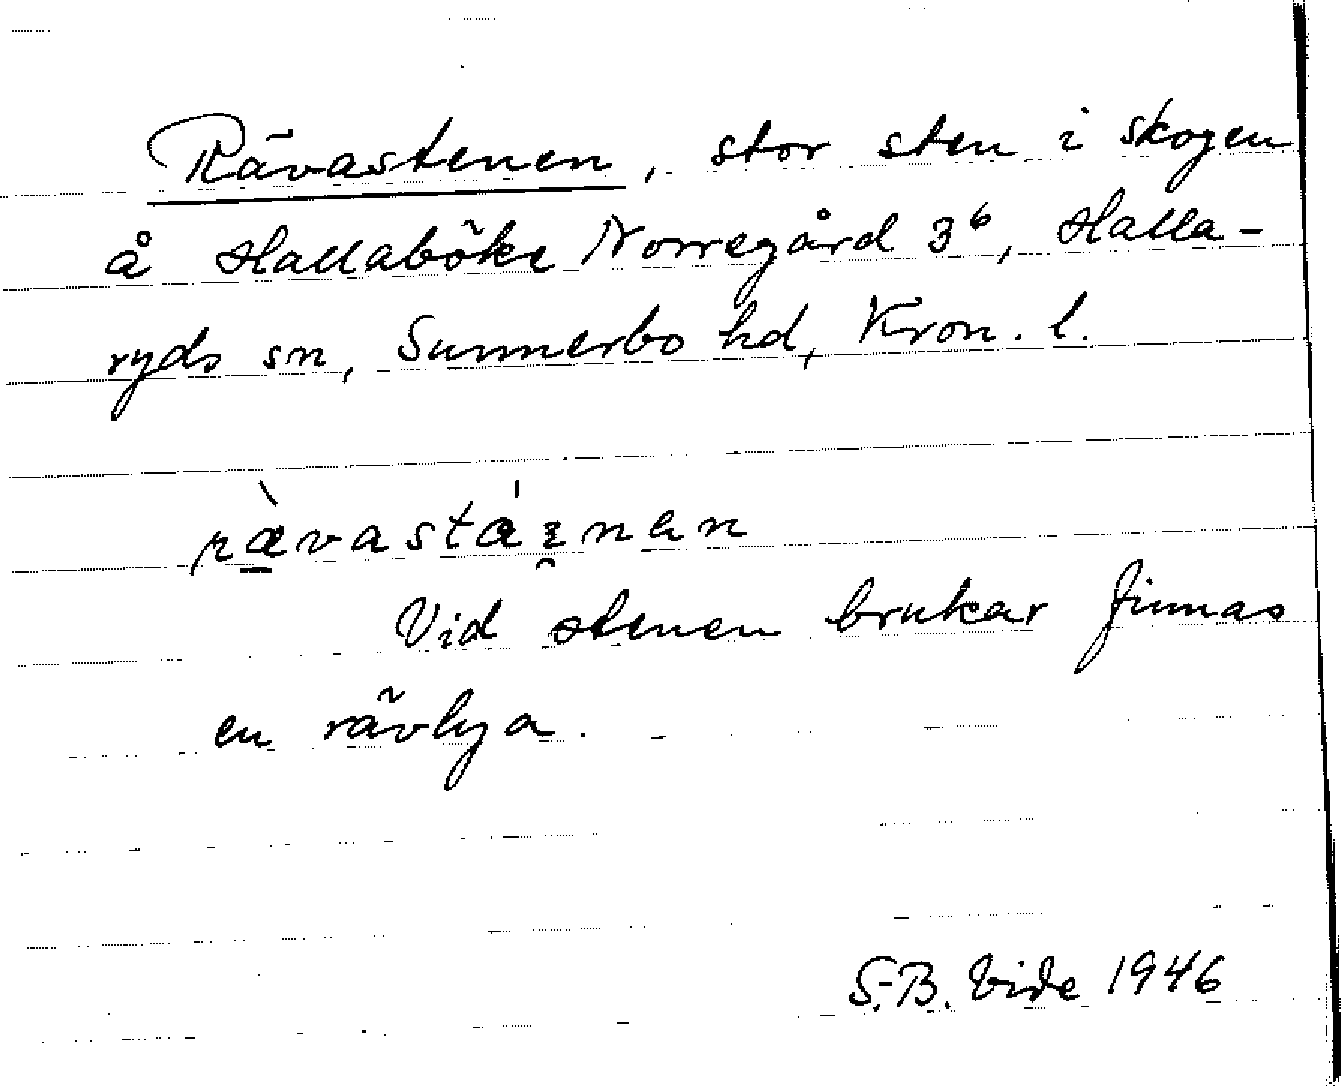 Rävastenen, stor sten i skogen
å Hallaböke Norregård 3⁶, Halla-
ryds sn, Sunnerbo hd, Kron. l.
ræ̀vastáɪ̯nan
Vid stenen brukar finnas
en rävlya.
S.-B. Vide 1946